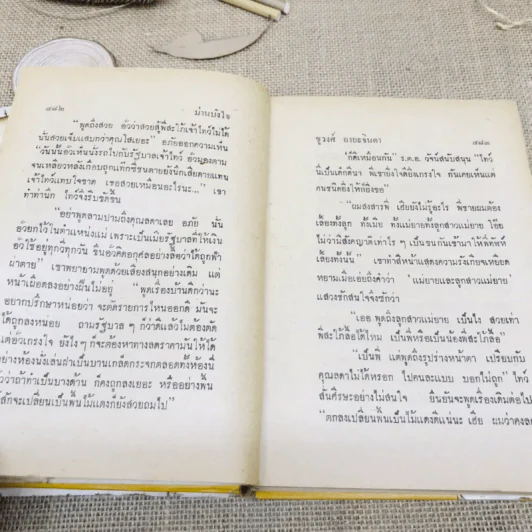 ๔๘๒
ม่านบังใจ
"พูดถึงสวย อัวว่าสวยสู้พี่สะใภ้เจ้าโทว์ไม่ได้
นั่นสวยเจ็บแสบกว่าคุณใสเยอะ" อภัยออกความเห็น
"วันนั้นอัวเห็นนั่งรถไปกับรัฐบาลเจ้าโทว์ อัวมองตาม
จนเหลียวหลังเกือบถูกแท๊กซี่ชนตายยังนึกเสียดายแทน
เจ้าโทว์แทบใจขาด เธอสวยเหมือนอะไรนะ..." เขา
ทำท่านึก โทว์จึงรีบขัดขึ้น
"อย่าพูดลามปามถึงคุณลดาเลย อภัย นั่น
อัวยกไว้ในตำแหน่งแม่ เพราะเป็นเมียรัฐบาลที่ให้เงิน
อัวใช้อยู่ทุกวี่ทุกวัน ขืนอัวคิดอกุศลอย่างลื้อว่าได้ถูกฟ้า
ผ่าตาย" เขาพยายามพูดด้วยเสียงสนุกอย่างเดิม แต่
หน้าเผือดลงอย่างฝืนไม่อยู่ "พูดเรื่องบ้านดีกว่านะ
อยากปรึกษาหน่อยว่า จะตัดรายการไหนออกดี มันจะ
ได้ถูกลงหน่อย ถามรัฐบาล ๆ ก็ว่าดีแล้วไม่ต้องตัด
แต่อัวเกรงใจ ยังไงๆ ก็จะต้องหาทางลดราคามันให้ได้
อย่างห้องนั่งเล่นฝาเป็นบานเกล็ดกระจกตลอดทั้งห้องนี่
ว่าถ้าทำเป็นบางด้าน ก็คงถูกลงเยอะ หรืออย่างพื้น
สักจะเปลี่ยนเป็นพื้นไม้แดงก็ยังสวยถมไป"
ชูวงศ์ ฉายะจินดา
๔๘๓
"ก็ดีเหมือนกัน" ร.ต.อ. วัจน์สนับสนุน "โทว์
นี่เป็นเด็กดีนา พี่เขายิ่งใจดียิ่งเกรงใจ กันเคยเห็นแต่
คนชนิดยิ่งให้ยิ่งขอ"
"ผมสงสารพี่ เฮียยังไม่รู้อะไร พี่ชายผมต้อง
เลี้ยงทั้งลูก ทั้งเมีย ทั้งแม่ยายทั้งลูกสาวแม่ยาย โอ๊ย
ไม่ว่ามีสังคญาติเท่าไร ๆ เป็นขนกันเข้ามาให้พี่ดิพัทธ์
เลี้ยงทั้งนั้น" เขาทำสีหน้าแสดงความรังเกียจเหยียด
หยามเมื่อเอ่ยถึงคำว่า "แม่ยายและลูกสาวแม่ยาย"
แสวงซักสนใจจึงซักว่า
"เออ พูดถึงลูกสาวแม่ยาย เป็นไง สวยเท่า
พี่สะใภ้ลื้อได้ไหม เป็นพี่หรือเป็นน้องพี่สะใภ้ลื้อ"
"เป็นพี่ แต่พูดถึงรูปร่างหน้าตา เปรียบกับ
คุณลดาไม่ได้หรอก ไปคนละแบบ บอกไม่ถูก" โทว์
สั่นศีรษะอย่างไม่สนใจ ยืนยันจะพูดเรื่องเดิมต่อไป
"ตกลงเปลี่ยนพื้นเป็นไม้แดงดีแน่นะ เฮีย ผมว่าคงลด